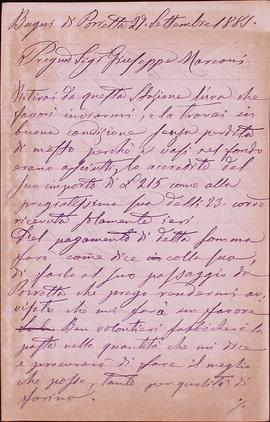 Bagni di Porretta 29 Settembre 1883.
Pregmo Sigr Giuseppe Marconi
Ritirai da questa Stazione l'uva che
favorì inviarmi, e la trovai in
buona condizione senza perdita
di mosto perchè i vasi nel fondo
erano asciutti, lo accredito del
suo importo di £ 215 come alla
pregiatissima sua delli 23. corre
ricevuta solamente ieri
Del pagamento di detta somma
farò come dice colla sua,
di farlo al suo passaggio da
Porretta che prego rendermi av,
visato che mi farà un favore
Ben volontieri fabbricherò la
pasta nella quantità che mi dice
e procurerò di fare il meglio
che posso, tanto per qualità di
farina